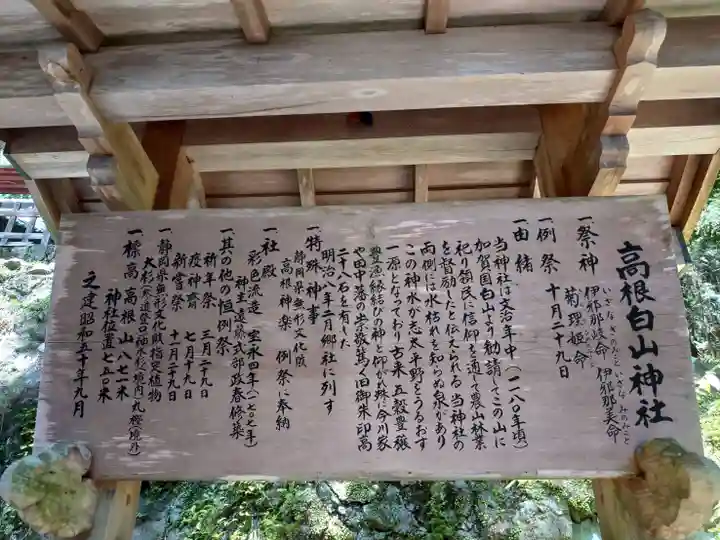 高根白山神社
一祭神
いざなぎのみこと いざなみのみこと
伊邪那岐命 伊邪那美命
菊理姫命
一例祭 十月二十九日
一由緒
当神社は文治年中(一一八〇年頃)
加賀国白山より勧請してこの山に
祀り領民に信仰を通して農山林業
を督励したと伝えられる当神社の
両側には水枯れを知らぬ泉があり
この神水が志太平野をうるおす
一源となっており古来五穀豊穣
豊漁縁結びの神と仰がれ殊に今川家
や田中藩の崇敬篤く旧御朱印高
二十八石を有した
明治八年二月郷社に列す
一特殊神事
静岡県無形文化財
高根神楽 例祭に奉納
一社殿
彩色流造 宝永四年(一七〇七年)
神主遠藤式部政春修築
一其の他の恒例祭
祈年祭 三月二十九日
疫神斎 七月十九日
新嘗祭 十一月二十九日
一静岡県無形文化財指定植物
大杉
一標高 高根山八七一米
神社位置七五〇米
之建昭和五十年九月